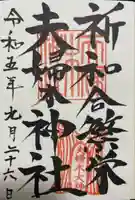 祈和合繁栄
夫婦木神社
令和五年九月二十六日